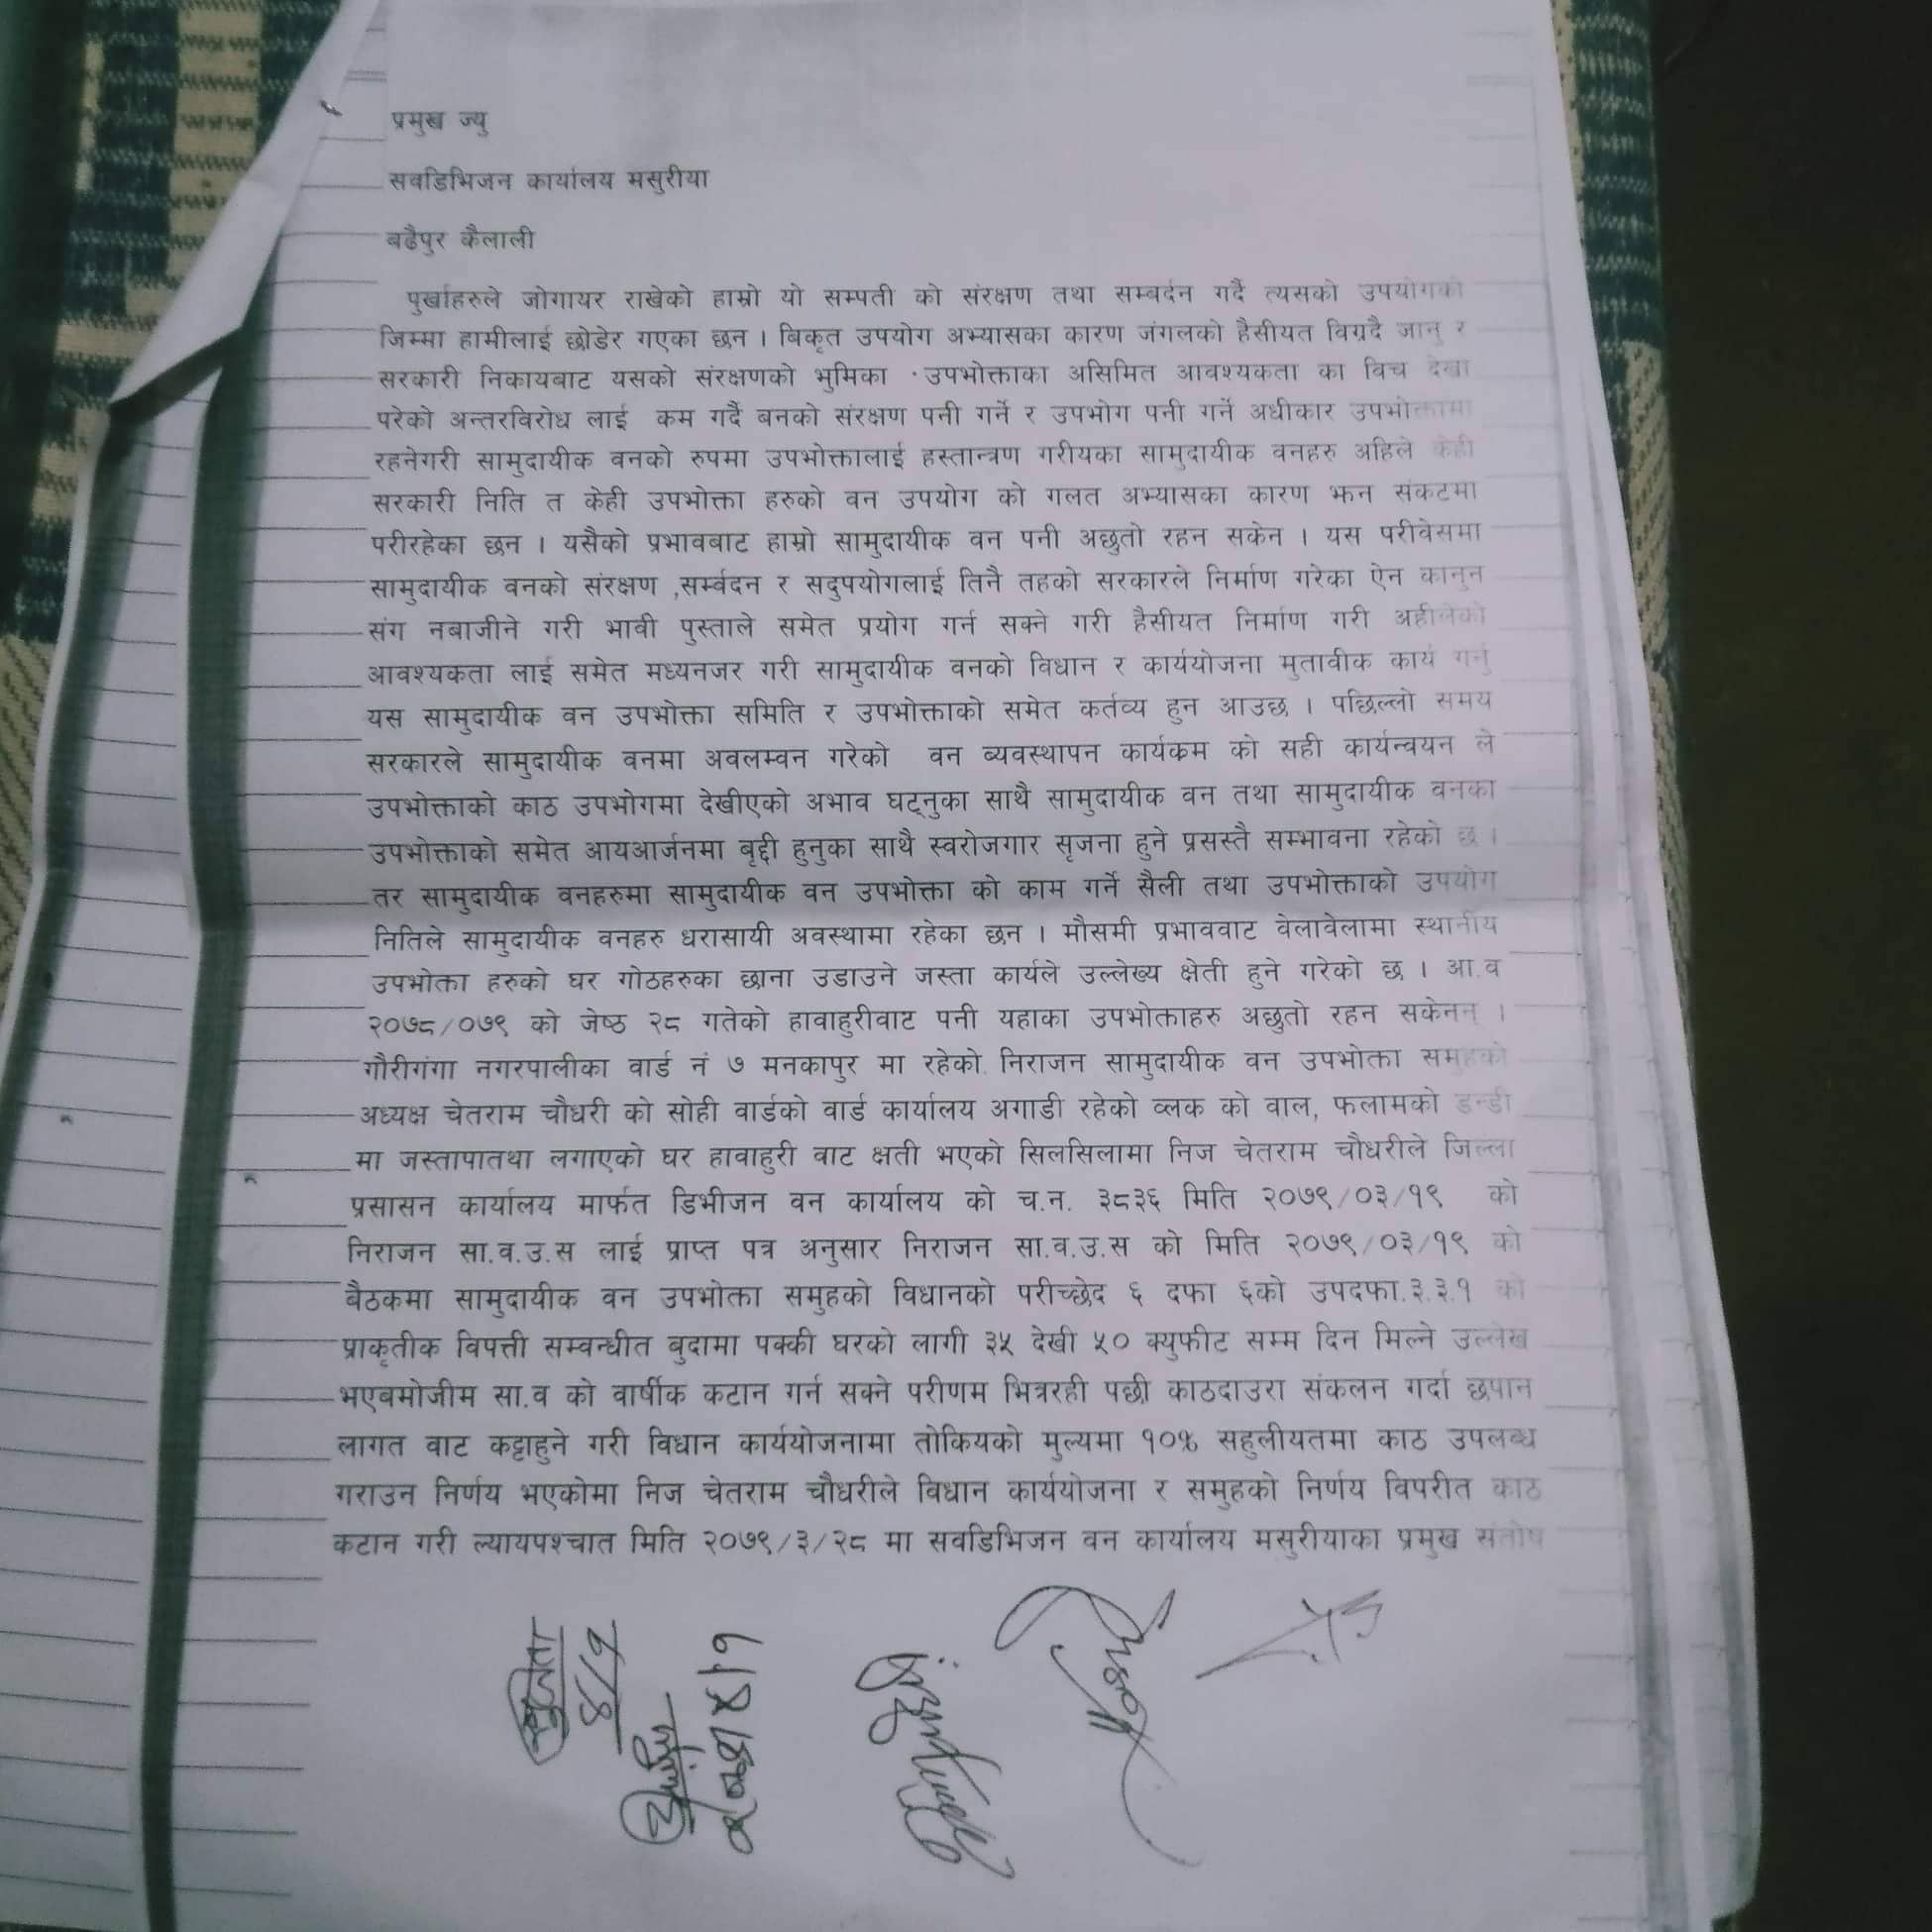 प्रमुख ज्यु
सवडिभिजन कार्यालय मसुरीया
बढैपुर कैलाली
पुर्खाहरुले जोगायर राखेको हाम्रो यो सम्पती को संरक्षण तथा सम्बर्दन गर्दै त्यसको उपयोगको
जिम्मा हामीलाई छोडेर गएका छन । बिकृत उपयोग अभ्यासका कारण जंगलको हैसीयत विग्रदै जानु र
सरकारी निकायबाट यसको संरक्षणको भुमिका उपभोक्ताका असिमित आवश्यकता का विच देखा
परेको अन्तरविरोध लाई कम गर्दै बनको संरक्षण पनी गर्ने र उपभोग पनी गर्ने अधीकार उपभोक्तामा
रहनेगरी सामुदायीक वनको रुपमा उपभोक्तालाई हस्तान्त्रण गरीयका सामुदायीक वनहरु अहिले केही
सरकारी निति त केही उपभोक्ता हरुको वन उपयोग को गलत अभ्यासका कारण झन संकटमा
परीरहेका छन । यसैको प्रभावबाट हाम्रो सामुदायीक वन पनी अछुतो रहन सकेन । यस परीवेसमा
सामुदायीक वनको संरक्षण ,सर्म्वदन र सदुपयोगलाई तिनै तहको सरकारले निर्माण गरेका ऐन कानुन
संग नबाजीने गरी भावी पुस्ताले समेत प्रयोग गर्न सक्ने गरी हैसीयत निर्माण गरी अहीलेको
आवश्यकता लाई समेत मध्यनजर गरी सामुदायीक वनको विधान र कार्ययोजना मुतावीक कार्य गर्नु
यस सामुदायीक वन उपभोक्ता समिति र उपभोक्ताको समेत कर्तव्य हुन आउछ । पछिल्लो समय
सरकारले सामुदायीक वनमा अवलम्वन गरेको वन ब्यवस्थापन कार्यक्रम को सही कार्यन्वयन ले
उपभोक्ताको काठ उपभोगमा देखीएको अभाव घट्नुका साथै सामुदायीक वन तथा सामुदायीक वनका
उपभोक्ताको समेत आयआर्जनमा बृद्दी हुनुका साथै स्वरोजगार सृजना हुने प्रसस्तै सम्भावना रहेको छ ।
तर सामुदायीक वनहरुमा सामुदायीक वन उपभोक्ता को काम गर्ने सैली तथा उपभोक्ताको उपयोग
नितिले सामुदायीक वनहरु धरासायी अवस्थामा रहेका छन । मौसमी प्रभाववाट वेलावेलामा स्थानीय
उपभोक्ता हरुको घर गोठहरुका छाना उडाउने जस्ता कार्यले उल्लेख्य क्षेती हुने गरेको छ । आ.व
२०७८/०७९ को जेष्ठ २८ गतेको हावाहुरीवाट पनी यहाका उपभोक्ताहरु अछुतो रहन सकेनन् ।
गौरीगंगा नगरपालीका वार्ड नं ७ मनकापुर मा रहेको निराजन सामुदायीक वन उपभोक्ता समुहको
अध्यक्ष चेतराम चौधरी को सोही वार्डको वार्ड कार्यालय अगाडी रहेको व्लक को वाल, फलामको डन्डी
मा जस्तापातथा लगाएको घर हावाहुरी वाट क्षती भएको सिलसिलामा निज चेतराम चौधरीले जिल्ला
प्रसासन कार्यालय मार्फत डिभीजन वन कार्यालय को च.न. ३८३६ मिति २०७९/०३/१९ को
निराजन सा.व.उ.स लाई प्राप्त पत्र अनुसार निराजन सा.व.उ.स को मिति २०७९/०३/१९ को
बैठकमा सामुदायीक वन उपभोक्ता समुहको विधानको परीच्छेद ६ दफा ६को उपदफा.३.३.१ को
प्राकृतीक विपत्ती सम्वन्धीत बुदामा पक्की घरको लागी ३५ देखी ५० क्युफीट सम्म दिन मिल्ने उल्लेख
भएबमोजीम सा.व को वार्षीक कटान गर्न सक्ने परीणम भित्ररही पछी काठदाउरा संकलन गर्दा छपान
लागत वाट कट्टाहुने गरी विधान कार्ययोजनामा तोकियको मुल्यमा १०% सहुलीयतमा काठ उपलब्ध
गराउन निर्णय भएकोमा निज चेतराम चौधरीले विधान कार्ययोजना र समुहको निर्णय विपरीत काठ
कटान गरी ल्यायपश्चात मिति २०७९/३/२८ मा सवडिभिजन वन कार्यालय मसुरीयाका प्रमुख संतोष